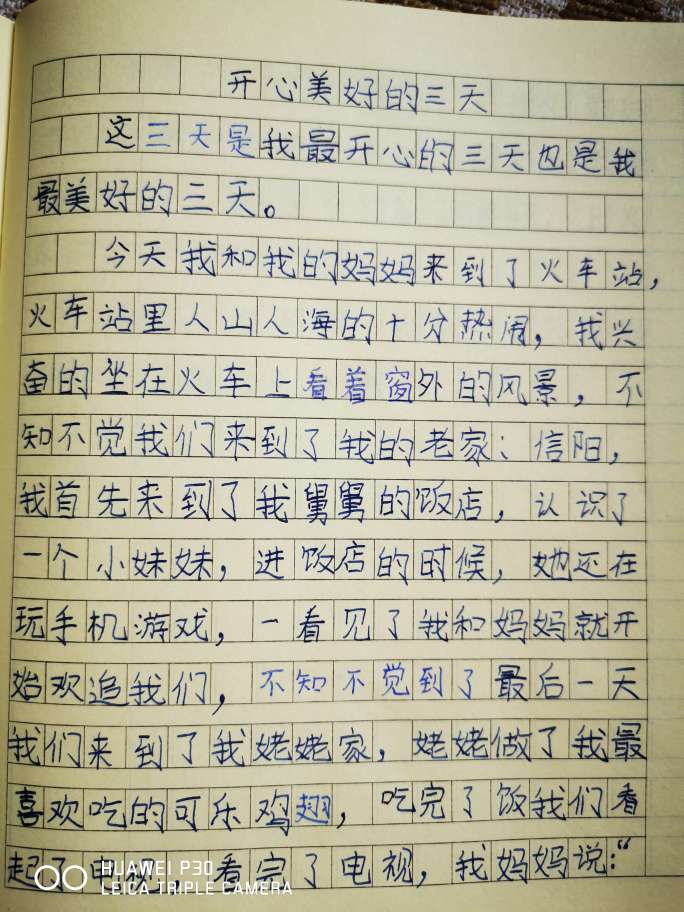 开心美好的三天
这三天是我最开心的三天也是我
最美好的三天。
今天我和我的妈妈来到了火车站,
火车站里人山人海的十分热闹,我兴
奋的坐在火车上看着窗外的风景,不
知不觉我们来到了我的老家:信阳,
我首先来到了我舅舅的饭店,认识了
一个小妹妹,进饭店的时候,她还在
玩手机游戏,一看见了我和妈妈就开
始欢追我们,不知不觉到了最后一天
我们来到了我姥姥家,姥姥做了我最
喜欢吃的可乐鸡翅,吃完了饭我们看
起了电视,看完了电视,我妈妈说:“
HUAWEI P30
LEICA TRIPLE CAMERA